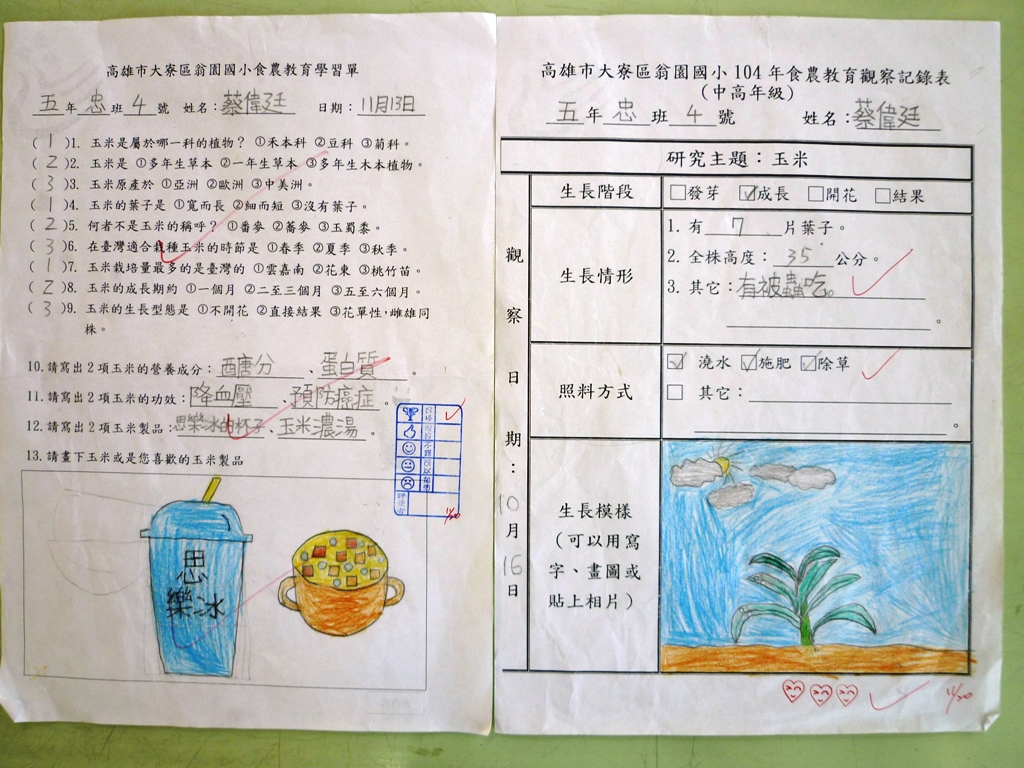 高雄市大寮區翁園國小食農教育學習單
五年忠班4號 姓名：蔡偉廷 日期：11月13日
(1)1. 玉米是屬於哪一科的植物？ ①禾本科 ②豆科 ③菊科。
(2)2. 玉米是 ①多年生草本 ②一年生草本 ③多年生木本植物。
(3)3. 玉米原產於 ①亞洲 ②歐洲 ③中美洲。
(1)4. 玉米的葉子是 ①寬而長 ②細而短 ③沒有葉子。
(2)5. 何者不是玉米的稱呼？ ①番麥 ②蕎麥 ③玉蜀黍。
(3)6. 在臺灣適合栽種玉米的時節是 ①春季 ②夏季 ③秋季。
(1)7. 玉米栽培量最多的是臺灣的 ①雲嘉南 ②花東 ③桃竹苗。
(2)8. 玉米的成長期約 ①一個月 ②二至三個月 ③五至六個月。
(3)9. 玉米的生長型態是 ①不開花 ②直接結果 ③花單性，雌雄同
株。
10.請寫出2項玉米的營養成分：醣分、蛋白質。
11.請寫出2項玉米的功效：降血壓、預防癌症。
12.請寫出2項玉米製品：思樂冰的杯子、玉米濃湯。
13.請畫下玉米或是您喜歡的玉米製品
思
樂冰
11/20
高雄市大寮區翁園國小104年食農教育觀察記錄表
（中高年級）
五年忠班4號 姓名：蔡偉廷
研究主題：玉米
觀察日期：10月16日
生長階段 □發芽 ☑成長 □開花 □結果
生長情形
1. 有7片葉子。
2. 全株高度：35公分。
3. 其它：有被蟲吃。
。
照料方式
☑ 澆水 ☑施肥 ☑除草
□ 其它：
。
生長模樣
（可以用寫
字、畫圖或
貼上相片）
11/20